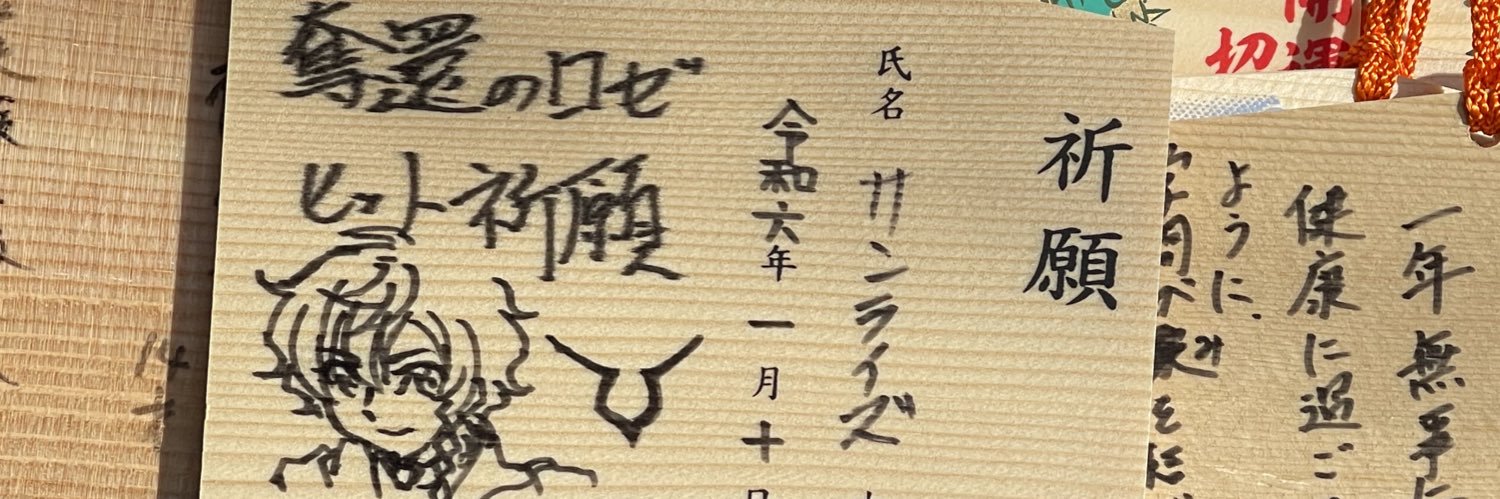 奪還のロゼ
ヒット祈願
祈願
氏名 サンライズ
令和六年一月十日
開運
切
一年無
健康に過ご
ように、